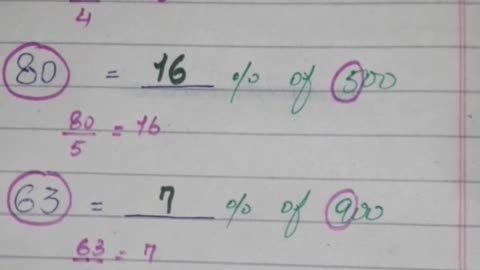 4
80 = 16 % of 500
80/5 = 16
63 = 7 % of 900
63 = 7